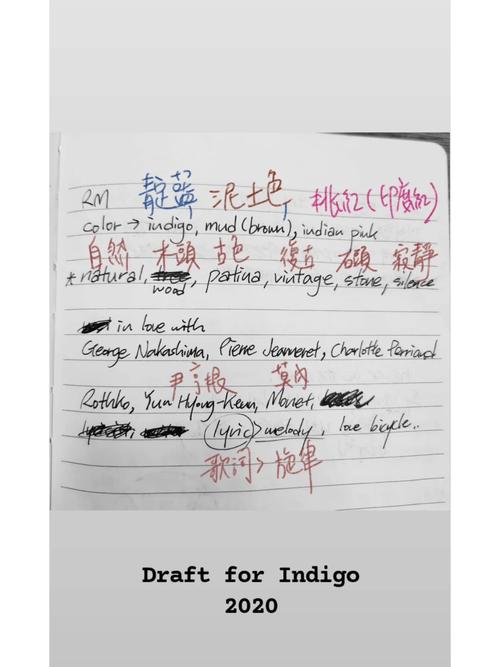 靛藍 泥土色 桃紅(印度紅)
RM
color → indigo, mud (brown), indian pink
自然 木頭 古色 復古 石頭 寂靜
* natural, tree, patina, vintage, stone, silence
wood
in love with
George Nakashima, Pierre Jeanneret, Charlotte Perriand
尹亨根 莫內
Rothko, Yun Hyong-Keun, Monet,
(lyric) > melody, love bicycle..
歌詞 > 旋律
Draft for Indigo
2020